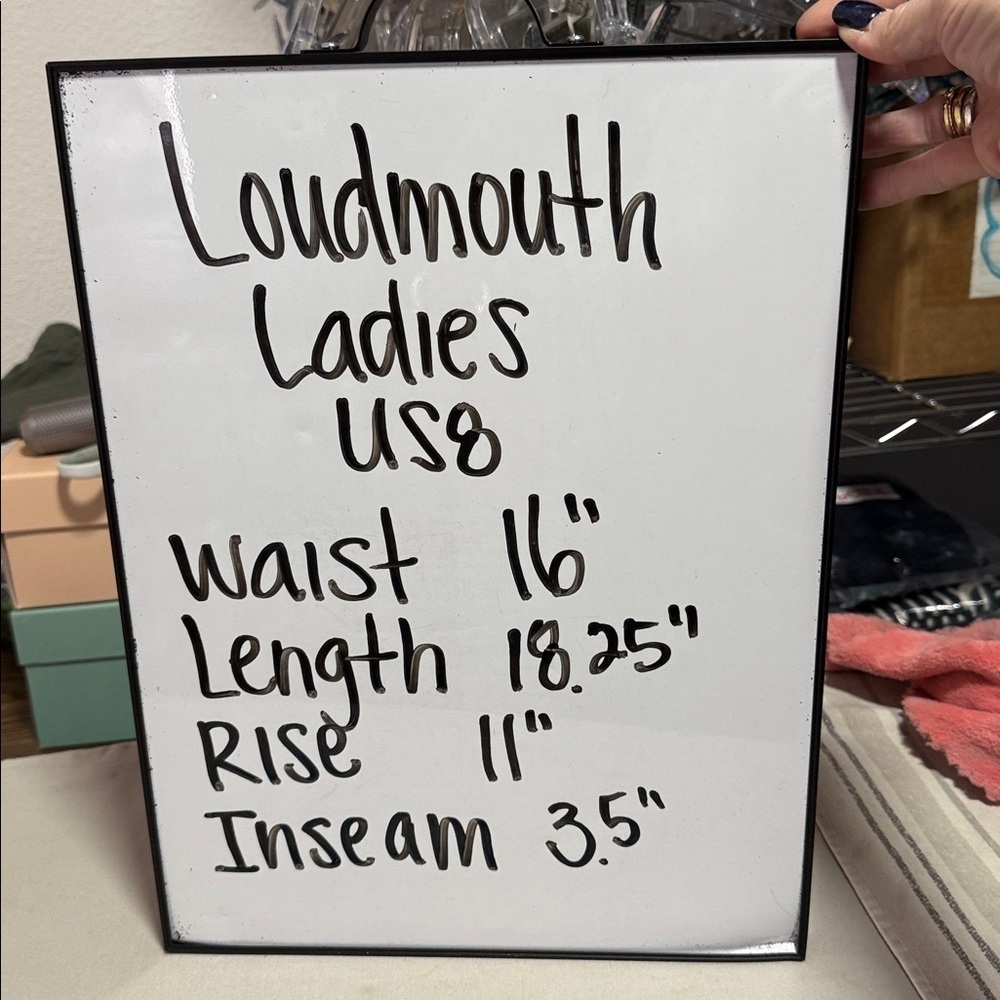 Loudmouth
Ladies
US8
Waist 16"
Length 18.25"
Rise 11"
Inseam 3.5"